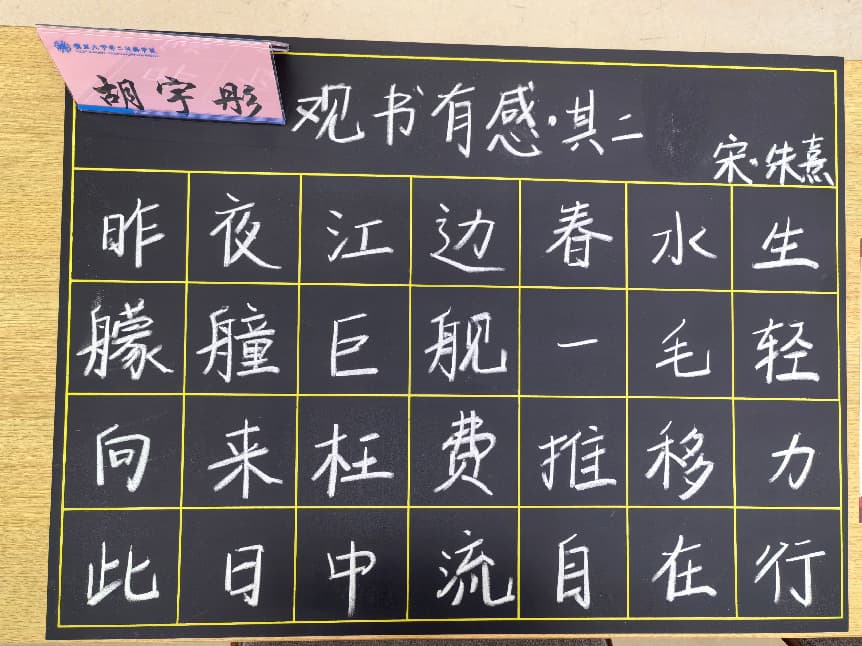 胡宇彤
观书有感·其二
宋·朱熹
昨夜江边春水生
艨艟巨舰一毛轻
向来枉费推移力
此日中流自在行